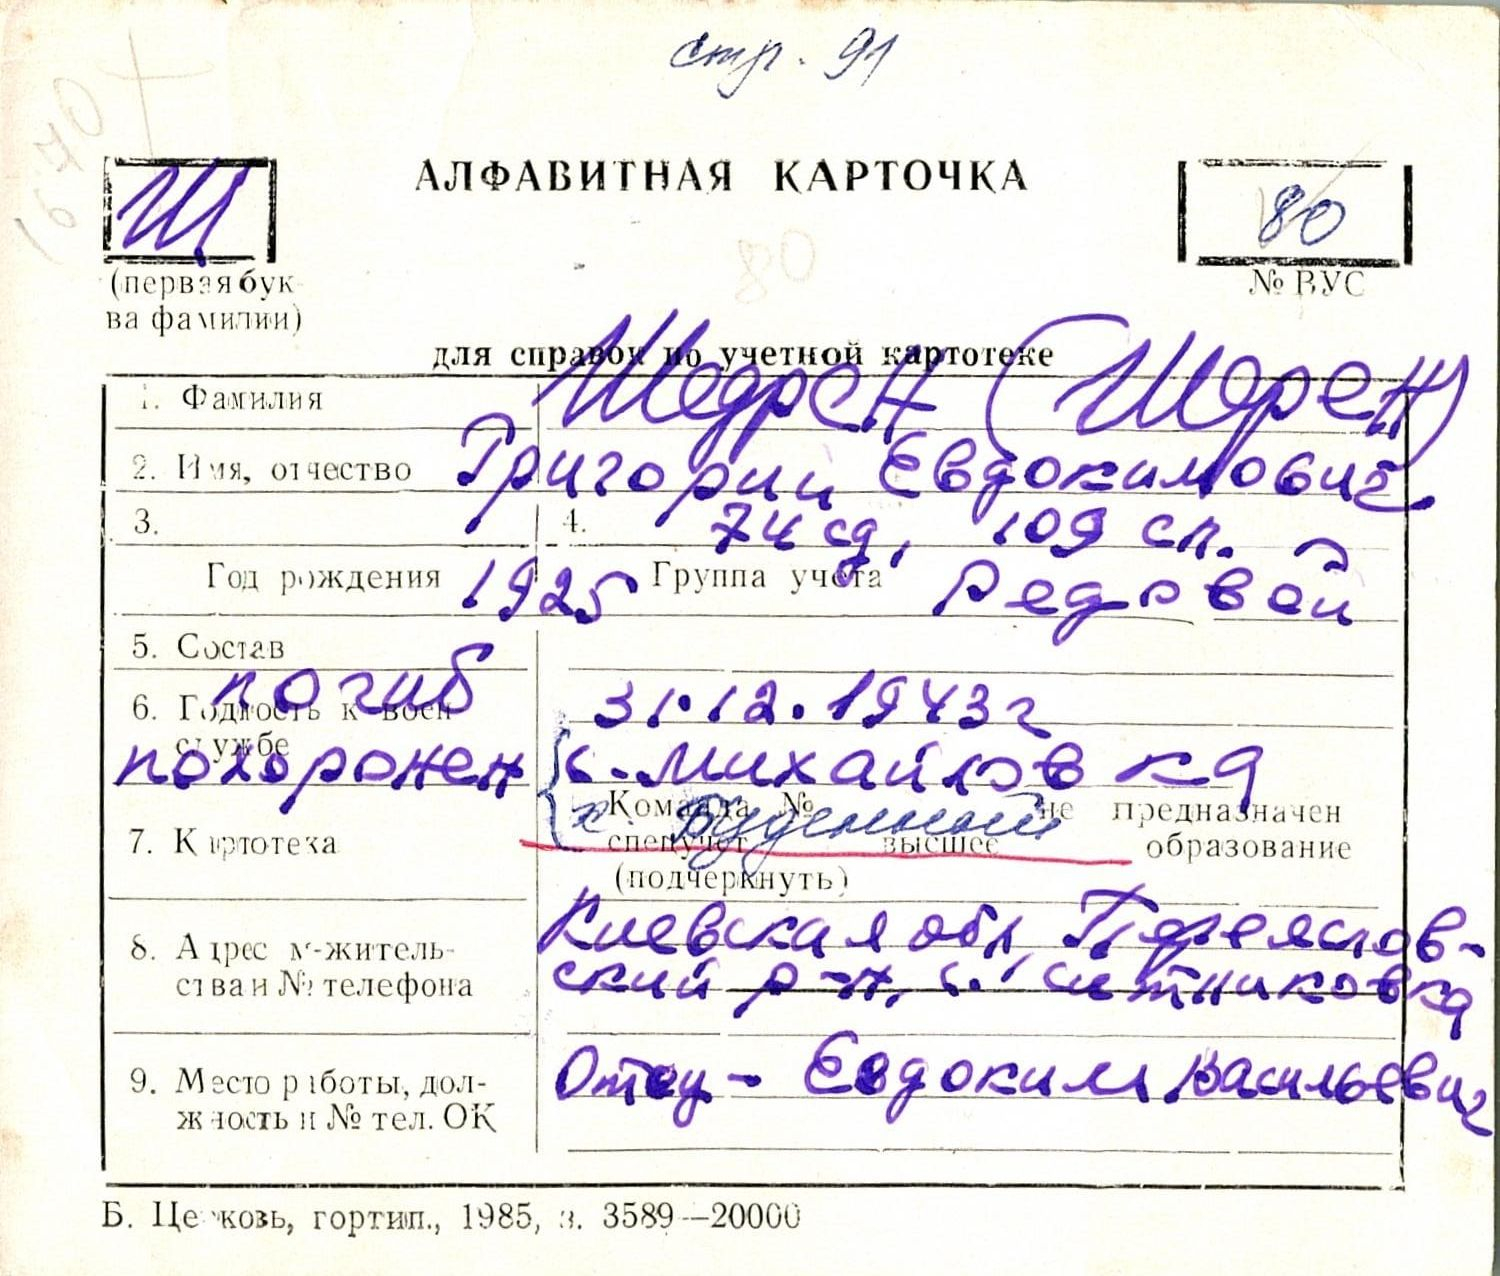 стр. 91
Щ
АЛФАВИТНАЯ КАРТОЧКА
80
(первая бук
ва фамилии)
№ ВУС
80
для справок по учетной картотеке
1. Фамилия Щедрен (Щерен)
2. Имя, отчество Григории Евдокимович.
3. 4. 74 сд, 109 сп.
Год рождения 1925 Группа учета Редовой
5. Состав
погиб 31.12.1943г
6. Годность к воен
службе
похоронен с. Михайловка
Команда № не предназначен
х. Буденный
7. Картотека спецучет высшее образование
(подчеркнуть)
Киевская обл, Переяслов-
8. Адрес м-житель-
ства и № телефона ский р-н, с. Ситниковка
9. Место работы, дол- Отец - Евдоким Васильевич
жность и № тел. ОК
Б. Церковь, гортип., 1985, з. 3589—20000